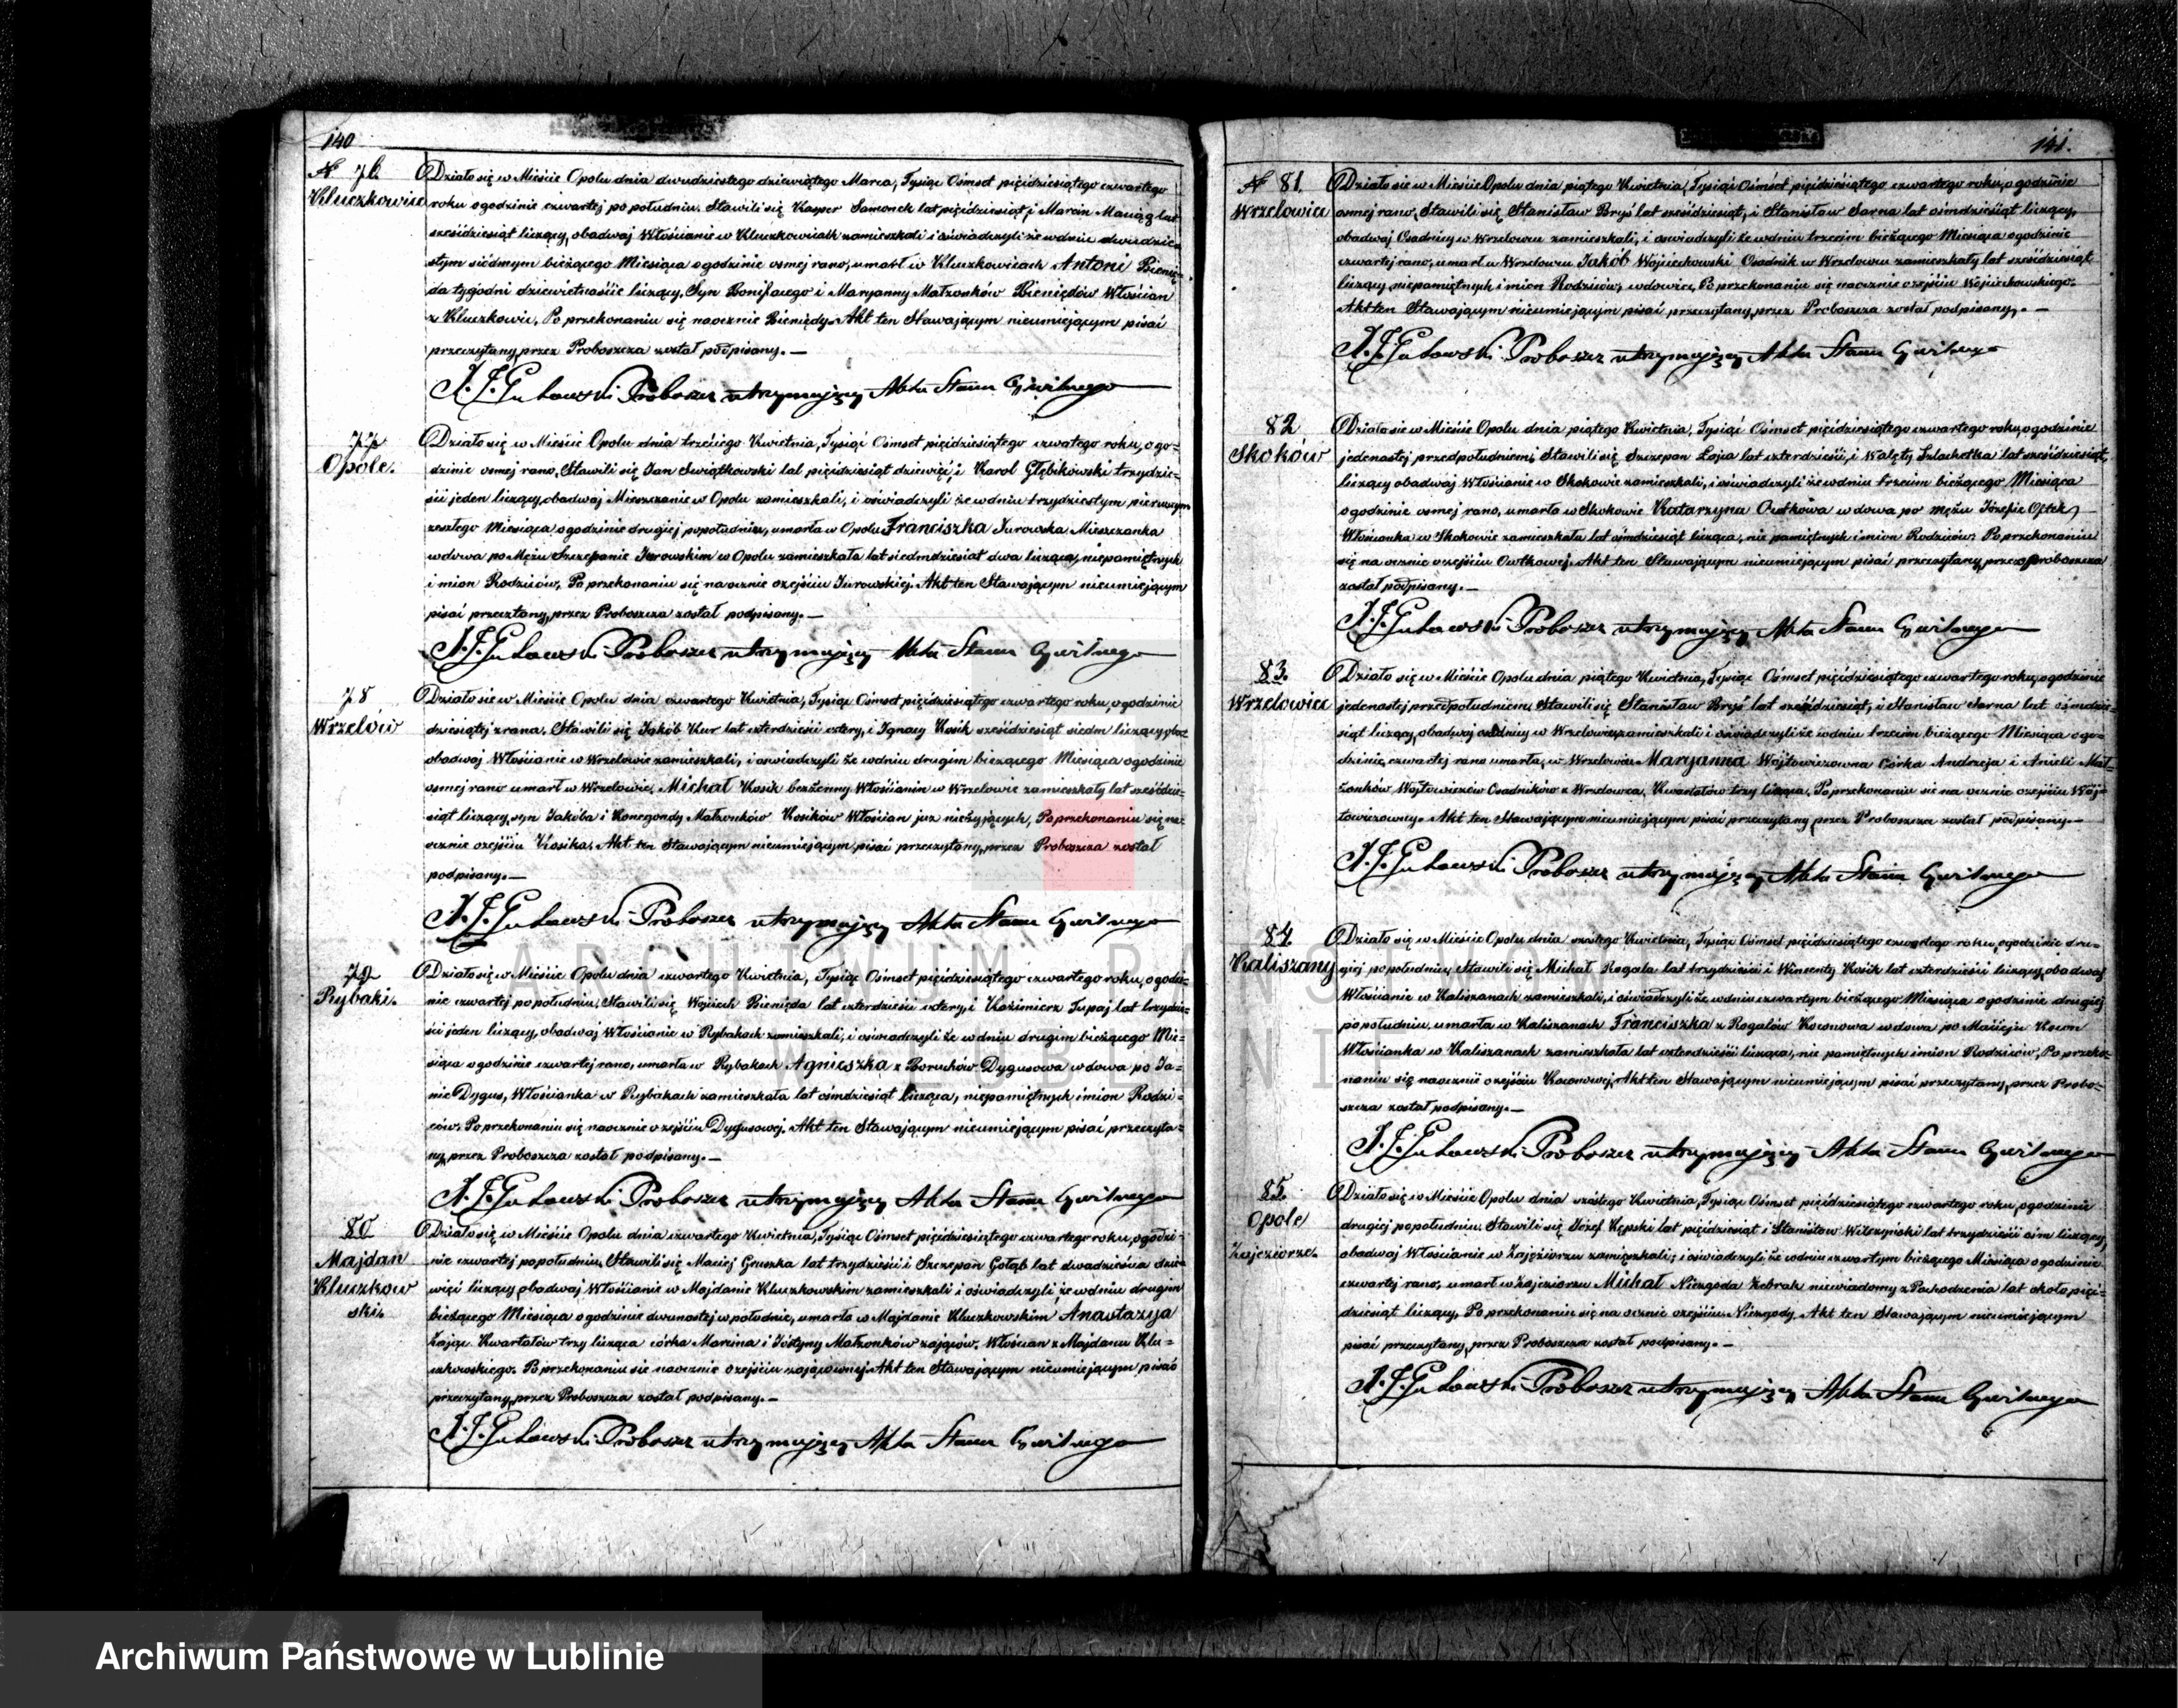 140
N 76
Kluczkowice
Działo się w Mieście Opolu dnia dwudziestego dziewiątego Marca, Tysiąc Ośmset pięćdziesiątego czwartego
roku o godzinie czwartej po południu. Stawili się Kasper Samonek lat pięćdziesiąt i Marcin Maciąg lat
sześćdziesiąt liczący, obadwaj Włościanie w Kluczkowicach zamieszkali i oświadczyli że w dniu dwudzie-
stym siódmym bieżącego Miesiąca o godzinie osmej rano, umarł w Kluczkowicach Antoni Bienię-
da tygodni dziewietnaście liczący, Syn Bonifacego i Maryanny Małżonków Bieniędów Włościan
z Kluczkowic, Po przekonaniu się naocznie Bieniędy. Akt ten Stawającym nieumiejącym pisać
przeczytany, przez Proboszcza został podpisany. —
Proboszcz utrzymujący Akta Stanu Cywilnego
77
Opole.
Działo się w Mieście Opolu dnia trzeciego Kwietnia, Tysiąc Ośmset pięćdziesiątego czwatego roku, o go-
dzinie osmej rano, Stawili się Jan Swiątkowski lat pięćdziesiąt dziewięć, i Karol Głębikowski trzydzie-
ści jeden liczący, obadwaj Mieszczanie w Opolu zamieszkali, i oświadczyli że w dniu trzydziestym pierwszym
zeszłego Miesiąca o godzinie drugiej popołudniu, umarła w Opolu Franciszka Jurowska Mieszczanka
wdowa po Mężu Szczepanie Jurowskim w Opolu zamieszkała lat siedmdziesiat dwa licząca, niepamiętnych
imion Rodziców, Po przekonaniu się naocznie o zejściu Jurowskiej. Akt ten Stawającym nieumiejącym
pisać przecztany, przez Proboszcza został podpisany. —
Proboszcz utrzymujący Akta Stanu Cywilnego
78
Wrzelów
Działo sie w Mieście Opolu dnia czwartego Kwietnia, Tysiąc Ośmset pięćdziesiątego czwartego roku, o godzinie
dziesiątej z rana, Stawili się Jakób Kur lat czterdzieści cztery, i Ignacy Kosik sześćdziesiąt siedm liczący
obadwaj Włościanie w Wrzelowie zamieszkali, i oswiadczyli że w dniu drugim bieżącego Miesiąca o godzinie
osmej rano umarł w Wrzelowie, Michał Kosik bezżenny Włościanin w Wrzelowie zamieszkały lat sześćdzie-
siąt liczący, syn Jakóba i Konegondy Małżonków Kosików Włościan już nieżyjących, Po przekonaniu się na-
ocznie o zejściu Kosika, Akt ten Stawającym nieumiejącym pisać przeczytany, przez Proboszcza został
podpisany. —
Proboszcz utrzymujący Akta Stanu Cywilnego
79
Rybaki.
Działo się w Mieście Opolu dnia czwartego Kwietnia, Tysiąc Ośmset pięćdziesiątego czwartego roku, o godzi-
nie czwartej po południu, Stawili się Wojciech Bienięda lat czterdzieści cztery, i Kazimierz Tupaj lat trzydzie-
ści jeden liczący, obadwaj Włościanie w Rybakach zamieszkali, i oświadczyli że w dniu drugim bieżącego Mie-
siąca o godzinie czwartej rano, umarła w Rybakach Agnieszka z Boruchów Dygusowa wdowa po Ja-
nie Dygus, Włościanka w Rybakach zamieszkała lat ośmdziesiąt licząca, niepamiętnych imion Rodzi-
ców. Po przekonaniu się naocznie o zejściu Dygusowej. Akt ten Stawającym nieumiejącym pisać przeczyta-
ny, przez Proboszcza został podpisany. —
Proboszcz utrzymujący Akta Stanu Cywilnego
80
Majdan
Kluczkow
ski.
Działo się w Mieście Opolu dnia czwartego Kwietnia, Tysiąc Ośmset pięćdziesiątego czwartego roku, o godzi-
nie czwartej po południu, Stawili się Maciej Gruszka lat trzydzieści i Szczepan Gołąb lat dwadzieścia dzie-
więć liczący, obadwaj Włościanie w Majdanie Kluczkowskim zamieszkali i oświadczyli że w dniu drugim
bieżącego Miesiąca o godzinie dwunastej w południe, umarła w Majdanie Kluczkowskim Anastazya
Zając Kwartałów trzy licząca córka Marcina i Justyny Małżonków Zająców, Włościan z Majdanu Klu-
czkowskiego. Po przekonaniu sie naocznie o zejściu Zającownej. Akt ten Stawającym nieumiejącym pisać
przeczytany, przez Proboszcza został podpisany. —
Proboszcz utrzymujący Akta Stanu Cywilnego
141.
N 81.
Wrzelowiec
Działo sie w Mieście Opolu dnia piątego Kwietnia, Tysiąc Ośmset pięćdziesiątego czwartego roku, o godzinie
osmej rano, Stawili się Stanisław Bryś lat sześćdziesiąt, i Stanisław Sarna lat ośmdziesiąt liczący,
obadwaj Osadnicy w Wrzelowcu zamieszkali, i oswiadczyli że w dniu trzecim bieżącego Miesiąca o godzinie
czwartej rano, umarł w Wrzelowcu Jakób Wojciechowski Osadnik w Wrzelowcu zamieszkały lat sześćdziesiąt
liczący, niepamiętnych imion Rodziców, wdowiec, Po przekonaniu się naocznie o zejściu Wojciechowskiego.
Akt ten Stawającym nieumiejącym pisać przeczytany, przez Proboszcza został podpisany. —
Proboszcz utrzymujący Akta Stanu Cywilnego
82
Skoków
Działo sie w Mieście Opolu dnia piątego Kwietnia, Tysiąc Ośmset pięćdziesiątego czwartego roku, o godzinie
jedenastej przedpołudniem, Stawili się Szczepan Łoja lat czterdzieści, i Walęty Szlachetka lat sześćdziesiąt,
liczący obadwaj Włościanie w Skokowie zamieszkali, i oświadczyli że w dniu trzecim bieżącego Miesiąca
o godzinie osmej rano, umarła w Skokowie Katarzyna wdowa po mężu Józefie
Włościanka w Skokowie zamieszkała lat ośmdziesiąt licząca, nie pamiętnych imion Rodziców. Po przekonaniu
się naocznie o zejściu Akt ten Stawającym nieumiejącym pisać przeczytany, przez Proboszcza
został podpisany. —
Proboszcz utrzymujący Akta Stanu Cywilnego
83.
Wrzelowiec
Działo się w Mieście Opolu dnia piątego Kwietnia, Tysiąc Ośmset pięćdziesiątego czwartego roku, o godzinie
jedenastej przedpołudniem, Stawili się Stanisław Bryś lat sześćdziesiąt, i Stanisław Sarna lat ośmdzie-
siąt liczący, obadwaj osadnicy w Wrzelowcu zamieszkali i oświadczyli że w dniu trzecim bieżącego Miesiąca o go-
dzinie czwartej rano umarła, w Wrzelowcu Maryanna Wójtowiczowna Córka Andrzeja i Anieli Mał-
żonków Wójtowiczów Osadników z Wrzelowca, Kwartałów trzy licząca, Po przekonaniu sie naocznie o zejściu Wój-
towiczowny. Akt ten Stawającym nieumiejącym pisać przeczytany, przez Proboszcza został podpisany. —
Proboszcz utrzymujący Akta Stanu Cywilnego
84.
Kaliszany
Działo się w Mieście Opolu dnia szóstego Kwietnia, Tysiąc Ośmset pięćdziesiątego czwartego roku, o godzinie dru-
giej po południu, Stawili się Michał Rogala lat trzydzieści i Wincenty Kosik lat czterdzieści liczący, obadwaj
Włościanie w Kaliszanach zamieszkali, i oświadczyli że w dniu czwartym bieżącego Miesiąca o godzinie drugiej
po południu, umarła w Kaliszanach Franciszka z Rogalów Koconowa wdowa po Macieju Kocon
Włościanka w Kaliszanach zamieszkała lat czterdzieści licząca, nie pamiętnych imion Rodziców, Po przeko-
naniu się naocznie o zejściu Koconowej, Akt ten Stawającym nieumiejącym pisać przeczytany, przez Probo-
szcza został podpisany. —
Proboszcz utrzymujący Akta Stanu Cywilnego
85.
Opole
Zajcziorze.
Działo się w Mieście Opolu dnia szóstego Kwietnia, Tysiąc Ośmset pięćdziesiątego czwartego roku, o godzinie
drugiej po południu, Stawili się Józef Kępski lat pięćdziesiąt i Stanisław Wilczyński lat trzydzieści ośm liczący,
obadwaj Włościanie w zamieszkali, i oświadczyli, że w dniu czwartym bieżącego Miesiąca o godzinie
czwartej rano, umarł w Michał Niezgoda Żebrak niewiadomy z Pochodzenia lat około pięć-
dziesiąt liczący, Po przekonaniu się naocznie o zejściu Niezgody. Akt ten Stawającym nieumiejącym
pisać przeczytany, przez Proboszcza został podpisany. —
Proboszcz utrzymujący Akta Stanu Cywilnego
Archiwum Państwowe w Lublinie